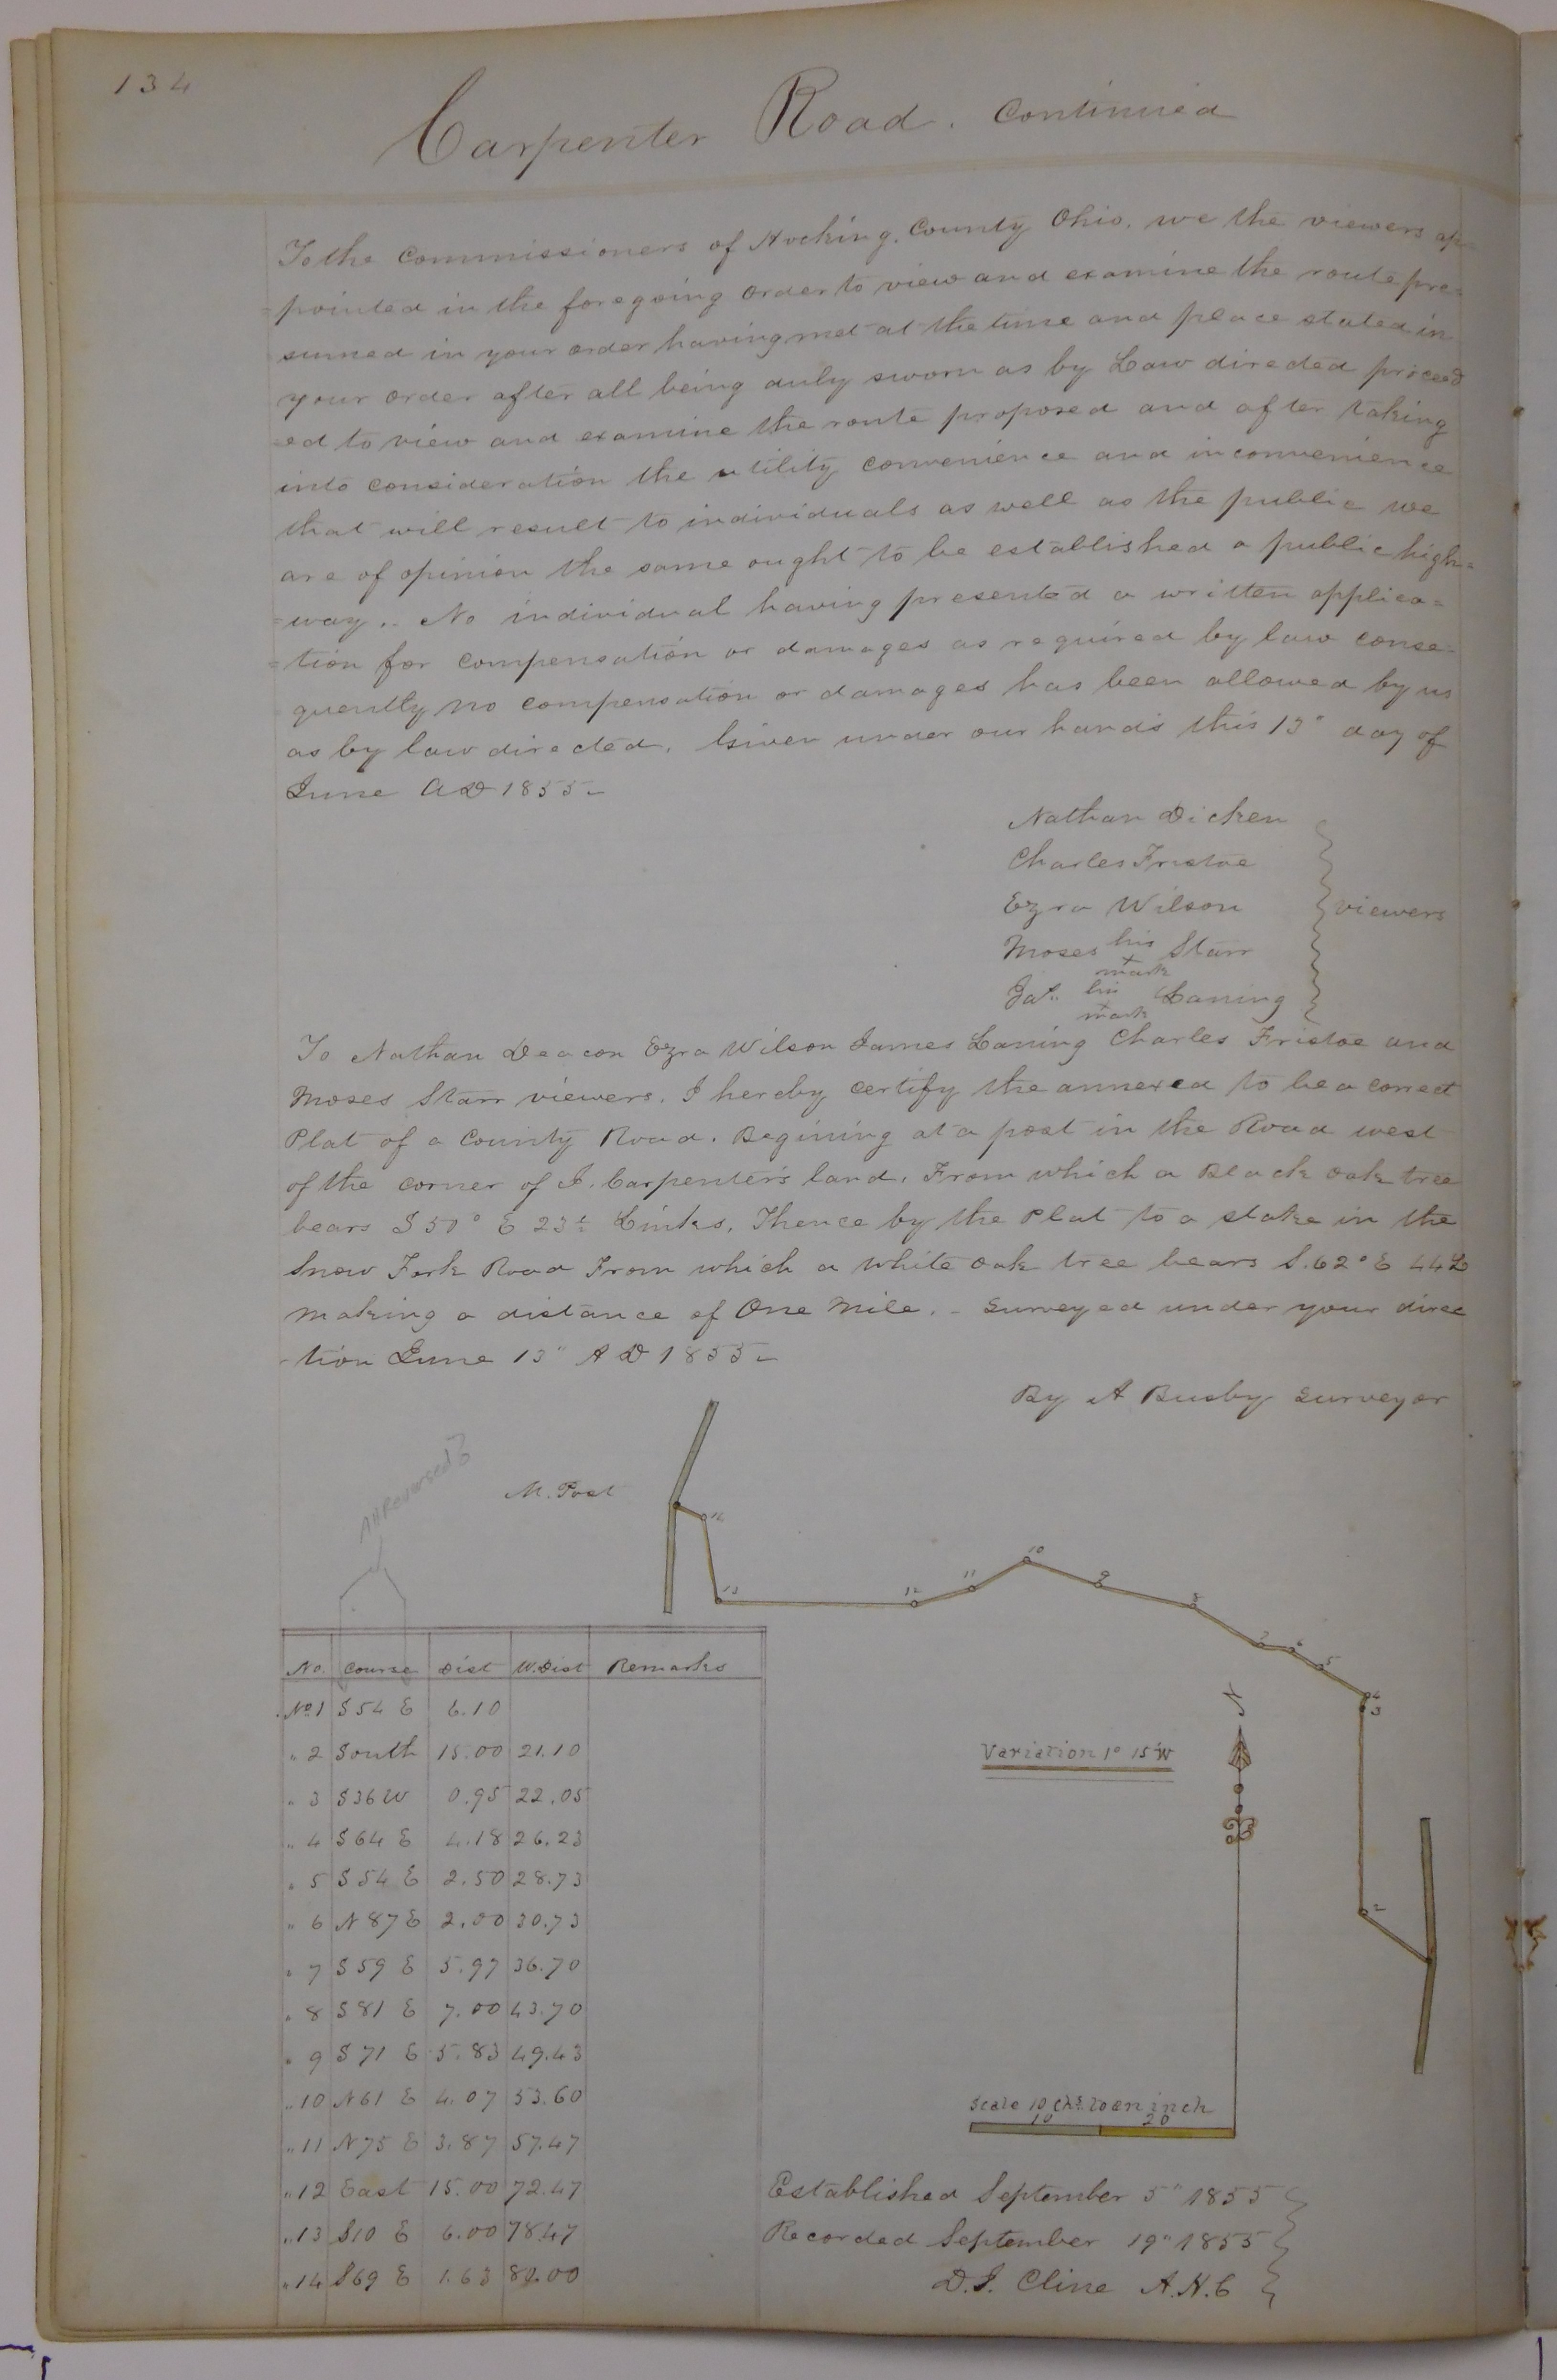 134
Carpenter Road. Continued
To the Commissioners of Hocking County Ohio. we the viewers ap=
=pointed in the foregoing order to view and examine the route pre=
sumed in your order having met at the time and place stated in
your order after all being duly sworn as by Law directed proceed
=ed to view and examine the route proposed and after taking
into consideration the utility convenience and inconvenience
that will result to individuals as well as the public we
are of opinion the same ought to be established a public high=
=way.. No individual having presented a written applica=
=tion for compensation or damages as required by law conse=
quently no compensation or damages has been allowed by us
as by law directed. Given under our hands this 13" day of
June AD 1855-
Nathan Dicken
Charles Fristoe
Ezra Wilson
viewers
Moses his x mark Starr
Jas. his x mark Laning
To Nathan Deacon Ezra Wilson James Laning Charles Fristoe and
Moses Starr viewers. I hereby certify the annexed to be a correct
Plat of a County Road. Begining at a post in the Road west
of the corner of J. Carpenter's land. From which a Black oak tree
bears S 50° E 23½ Links. Thence by the Plat to a stake in the
Snow Fork Road From which a white oak tree bears S.62° E 44 L
making a distance of One Mile. - Surveyed under your direc
-tion June 13" AD 1855-
By A Busby Surveyor
All Reversed?
M. Post
14
13
12
11
10
9
8
7
6
5
4
3
2
N
Variation 1° 15' W
Scale 10 chs. to an inch
10 20
No. Course Dist W.Dist Remarks
No 1 S 54 E 6.10
" 2 South 15.00 21.10
" 3 S 36 W 0.95 22.05
" 4 S 64 E 4.18 26.23
" 5 S 54 E 2.50 28.73
" 6 N 87 E 2.00 30.73
" 7 S 59 E 5.97 36.70
" 8 S 81 E 7.00 43.70
" 9 S 71 E 5.83 49.43
" 10 N 61 E 4.07 53.60
" 11 N 75 E 3.87 57.47
" 12 East 15.00 72.47
" 13 S 10 E 6.00 78.47
" 14 S 69 E 1.63 80.00
Established September 5" 1855
Recorded September 19" 1855
D.J. Cline A.H.C